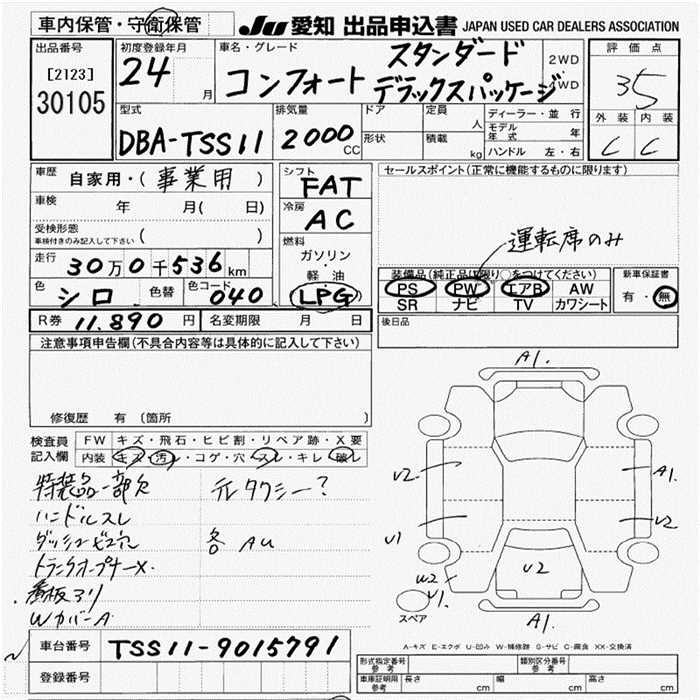 車内保管・守衛保管
JU 愛知 出品申込書 JAPAN USED CAR DEALERS ASSOCIATION
出品番号
[2123]
30105
初度登録年月
24 月
車名・グレード
スタンダード
コンフォート デラックスパッケージ
2WD
4WD
評価点
35
外装 内装
C C
型式
DBA-TSS11
排気量
2000 CC
ドア
形状
定員
人
積載
kg
ディーラー・並行
モデル年式 年
ハンドル 左・右
車歴
自家用・( 事業用 )
車検
年 月( 日)
受検形態
車検付きのみ記入して下さい ( )
走行
30万0千536km
色
シロ
色替
色コード
040
シフト
FAT
冷房
AC
燃料
ガソリン
・
軽・油
LPG
セールスポイント(正常に機能するものに限ります)
運転席のみ
装備品(純正品に限り○をつけてください)
PS PW エアB AW
SR ナビ TV カワシート
新車保証書
有・無
R券 11,890 円
名変期限 月 日
後日品
注意事項申告欄(不具合内容等は具体的に記入して下さい)
修復歴 有 (箇所 )
検査員
記入欄
FW キズ・飛石・ヒビ割・リペア跡・X要
内装 キズ・汚レ・コゲ・穴・スレ・キレ・破レ
特装品一部欠 元タクシー?
ハンドルスレ
ダッシュビス穴 各 AU
トランクオープナーX.
看板アリ
WカバーA
A1.
U2 A1.
U1 U2
U2
W2
U1.
スペア
A1.
A-キズ E-エクボ U-凹み W-補修跡 S-サビ C-腐食 XX-交換済
車台番号 TSS11-9015791
登録番号
形式指定番号
参考
類別区分番号
参考
車庫証明用
参考
長さ cm 幅 cm 高さ cm